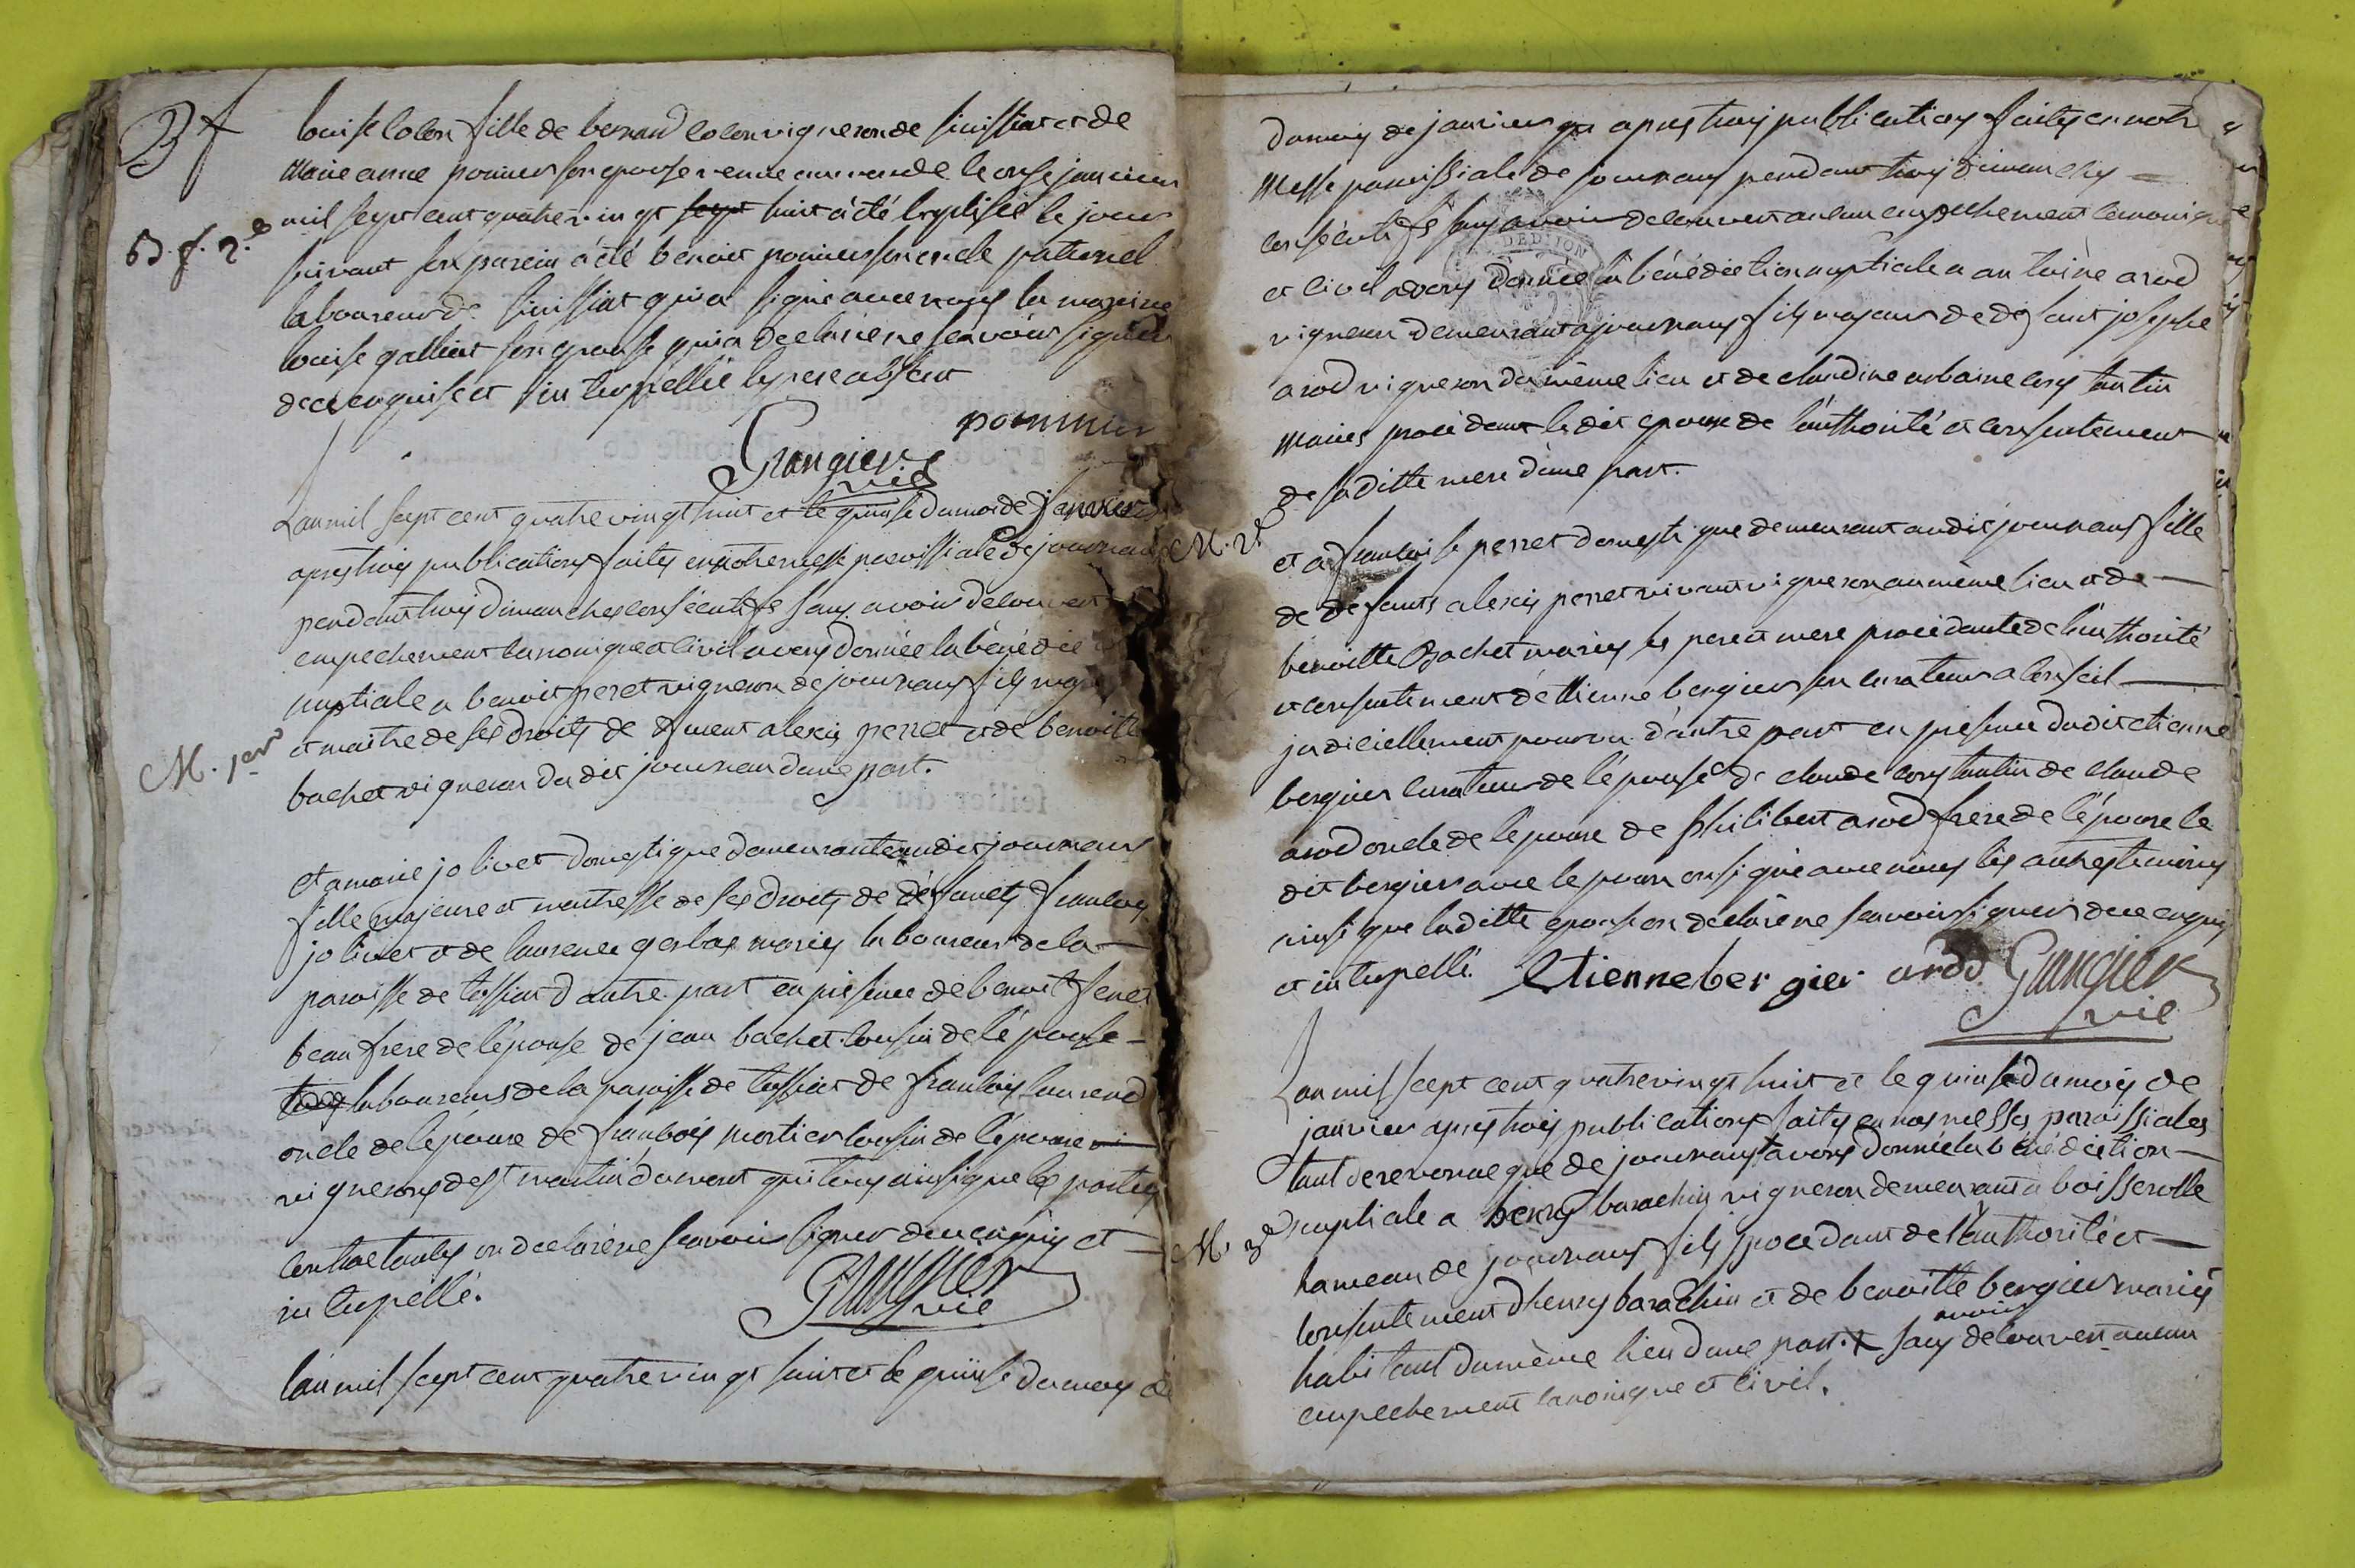 Bf
louise colon fille de bernard colon vigneron de simissiat et de
marie anne pomier son epouse venue au monde le onse janvier
mil sept cent quatre vingt sept huit à été baptisée le jour
B. f. 2.e
suivant son parein à été benoit pomier son oncle paternel
laboureur de simissiat qui a signé avec nous la mareine
louise galliat son epouse qui a declaré ne scavoir signer
de ce enquise et interpellée le pere absent
pommier
Grangier vic
Lan mil sept cent quatre vingt huit et le quinse du mois de janvier
apres trois publications faites en notre messe paroissiale de journans
pendant trois dimanches consécutifs sans avoir decouvert
empechement canonique et civil avons donnée la bénédic
nuptiale a benoit peret vigneron de journans fils maje
M. 1er
et maitre de ses droits de feuent alexis perret et de benoitte
bachet vigneron du dit journans dune part.
et a marie jolivet domestique demeurante audit journans
fille majeure et maitresse de ses droits de défunts francois
jolivet et de laurence gerbas mariés laboureurs de la
paroisse de tossiat d'autre part en présence de benoit feret
beau frere de l'épouse de jean bachet cousin de l'épouse
laboureurs de la paroisse de tossiat de francois laurend
oncle de lépoux de francois mortier cousin de l'épouse
vignerons de st martin du mont qui tous ainsi que les parties
contractantes on declaré ne scavoir signer de ce enquis et
interpellé.
Grangier vic
lan mil sept cent quatre vingt huit et le quinse du mois de
du mois de janvier apres trois publications faites en notre
messe paroissiale de journans pendant trois dimanches
consécutifs sans avoir decouvert aucun empechement canonique
et civil avons donnée la bénédiction nuptiale a antoine arod
vigneron demeurant a journans fils majeur de defunt josephe
arod vigneron du même lieu et de claudine urbaine constantin
mariés procédant le dit epoux de l'authorité et consentement
de sa ditte mere d'une part.
M. 2e
et a francoise perret domestique demeurant audit journans fille
de defunts alexis perret vivant vigneron au même lieu et de
benoitte Bachet mariés ses pere et mere procédante de l'authorité
et consentement d'ettienne bergier son curateur a conseil
judiciellement pourvu d'autre part en présence du dit etienne
bergier curateur de l'épouse de claude constantin de claude
arod oncle de l'époux de philibert arod frere de l'époux le
dit bergier avec le epoux on signé avec nous les autres temoins
ainsi que la ditte epouse on declaré ne scavoir signer de ce enquis
et interpellé. Etienne bergier arod. Grangier vic
Lan mil sept cent quatre vingt huit et le quinse du mois de
janvier apres trois publications faites en nos messes paroissiales
tant de revonnas que de journans avons donnée la bénédiction
M. 3e
nuptiale a henry barachin vigneron demeurant a boisserolle
hameau de journans fils procedant de l'authorité et
consentement dhenry barachin et de benoitte bergier mariés
habitant du même lieu dune part. + sans avoir decouvert aucun
empechement canonique et civil.